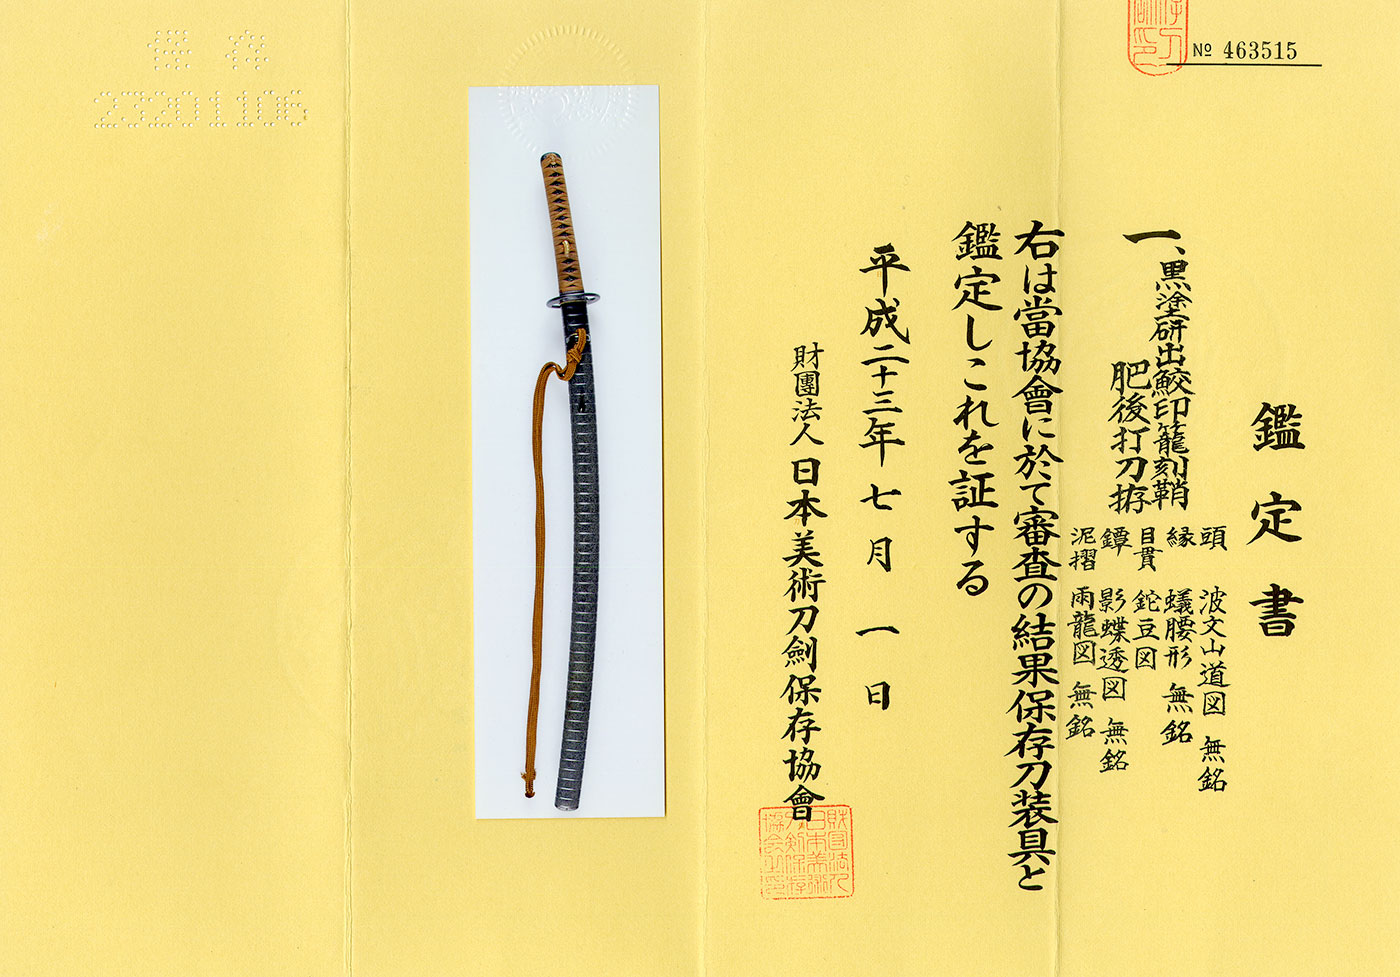 № 463515
鑑定書
一、黒塗研出鮫印籠刻鞘
肥後打刀拵
頭 波文山道図 無銘
縁 蟻腰形 無銘
目貫 鉈豆図
鐔 影蝶透図 無銘
泥摺 雨龍図 無銘
右は當協會に於て審査の結果保存刀装具と
鑑定しこれを証する
平成二十三年七月一日
財團法人日本美術刀劍保存協會
保存
23201106